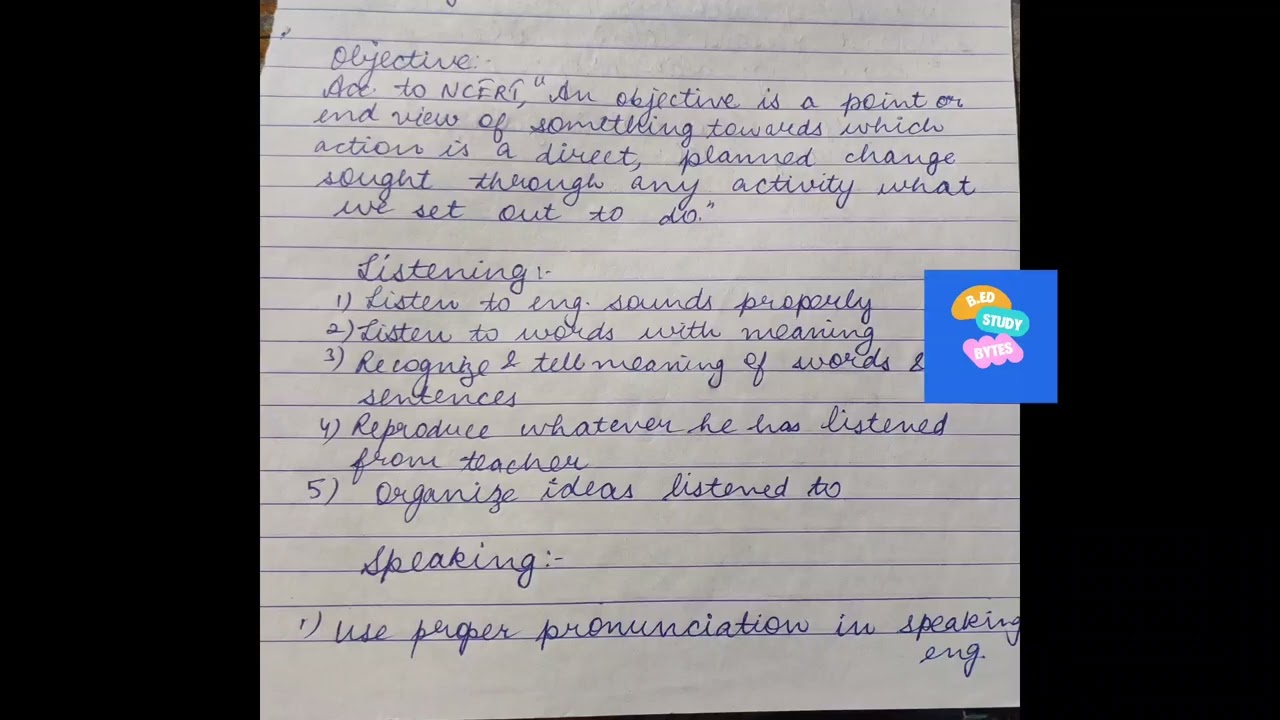 Objective:-
Acc. to NCERT, "An objective is a point or
end view of something towards which
action is a direct, planned change
sought through any activity what
we set out to do."
Listening:-
1) Listen to eng. sounds properly
2) Listen to words with meaning
3) Recognize & tell meaning of words &
sentences
4) Reproduce whatever he has listened
from teacher
5) Organize ideas listened to
Speaking:-
1) Use proper pronunciation in speaking
eng.
B.ED
STUDY
BYTES